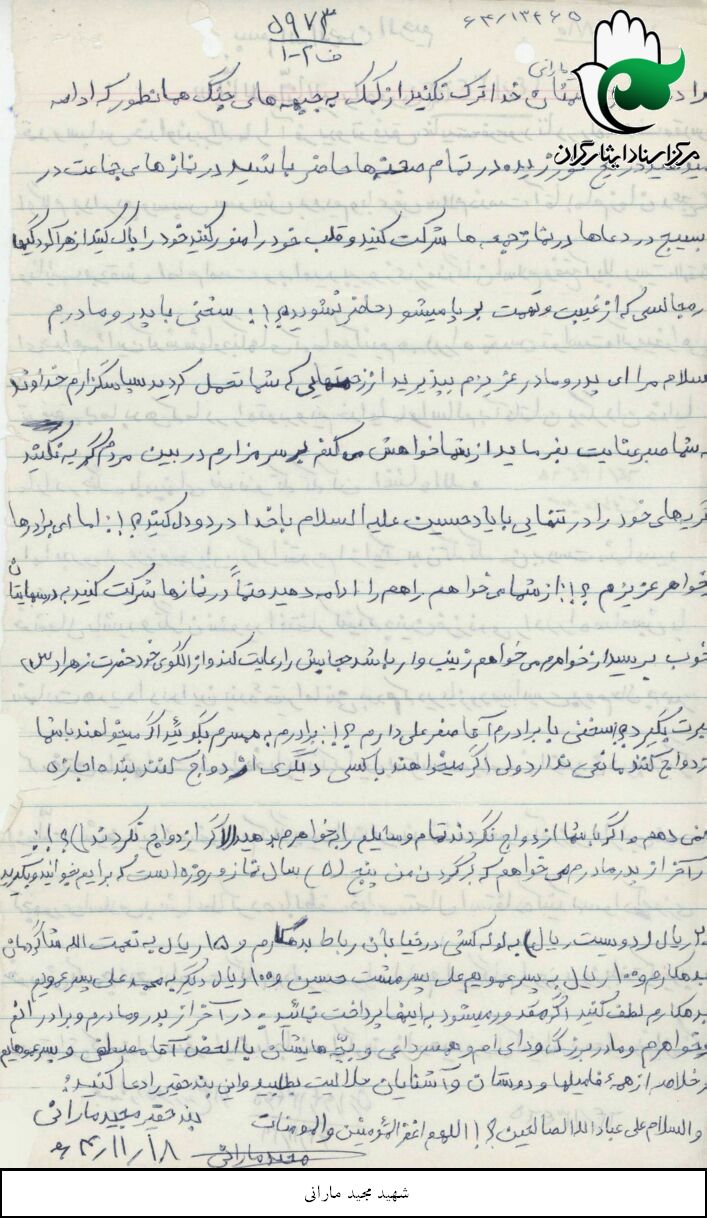 ۵۹۷۳
ف ۲-۱
۶۳/۱۳۴۶۵
مرکز اسناد ایثارگران
خدا ترک نکنید از کمک به جبهه های جنگ همانطور که ادامه
میدهید دریغ نورزیده در تمام صحنه ها حاضر باشید در نماز های جماعت در
بسیج در دعاها در نماز جمعه ها شرکت کنید و قلب خود را منور کنید خود را پاک کنید از هر آلودگیها
در مجالسی که از غیبت و تهمت بر پا میشو (حاضر نشوید) ؟!؛ سخنی با پدر و مادرم
سلام مرا ای پدر و مادر عزیزم بپذیرید از زحمتهایی که شما تحمل کردید سپاسگزارم خداوند
به شما صبر عنایت بفرماید از شما خواهش می کنم بر سر مزارم در بین مردم گریه نکنید
گریهای خود را در تنهایی با یاد حسین علیه السلام با خدا درد و دل کنید ؟!؛ اما ای برادرها
خواهر عزیزم ؟!؛ از شما می خواهم راهم را ادامه دهید حتماً در نمازها شرکت کنید به درسهایتان
خوب برسید از خواهرم می خواهم زینب وار باشد حجابش را رعایت کند و از الگوی خود حضرت زهرا (س)
عبرت بگیرد ؟!؛ سخنی با برادرم آقا صفر علی دارم ؟!؛ برادرم به همسرم بگوئید اگر میخواهند با شما
ازدواج کنند مانعی ندارد ولی اگر میخواهند با کسی دیگری ازدواج کنند بنده اجازه
نمی دهم و اگر با شما ازدواج نکردند تمام وسایلم را به خواهرم بدهید (اگر ازدواج نکردند) ؟!؛
در آخر از پدر مادرم می خواهم که بر گردن من پنج (۵) سال نماز و روزه است که برایم بخوانید و بگیرید
۲۰۰ ریال (دویست ریال) به لوله کشی در خیابان رباط بدهکارم و ۱۵ ریال به نعمت الله
بدهکارم و ۱۰۰ ریال به پسر عمویم علی پسر مشت حسین و ۱۰۰ ریال دیگر به محمد علی پسر عمویم
بدهکارم لطف کنید اگر مقدور میشود به اینها پرداخت نمائید در آخر از پدر و مادرم و برادرانم
و خواهرم و مادر بزرگ و دای ام و همسر دائی و بچه هایشان بالاخص آقا مصطفی و پسر عموهایم
در خلاصه از همۀ فامیلها و دوستان و آشنایان حلالیت بطلبید و این بنده حقیر را دعا کنید؛
والسلام علی عباد الله الصالحین ؟!؛ اللهم اغفر المؤمنین والمومنات
بنده حقیر مجید مارانی
مجید مارانی
شهید مجید مارانی